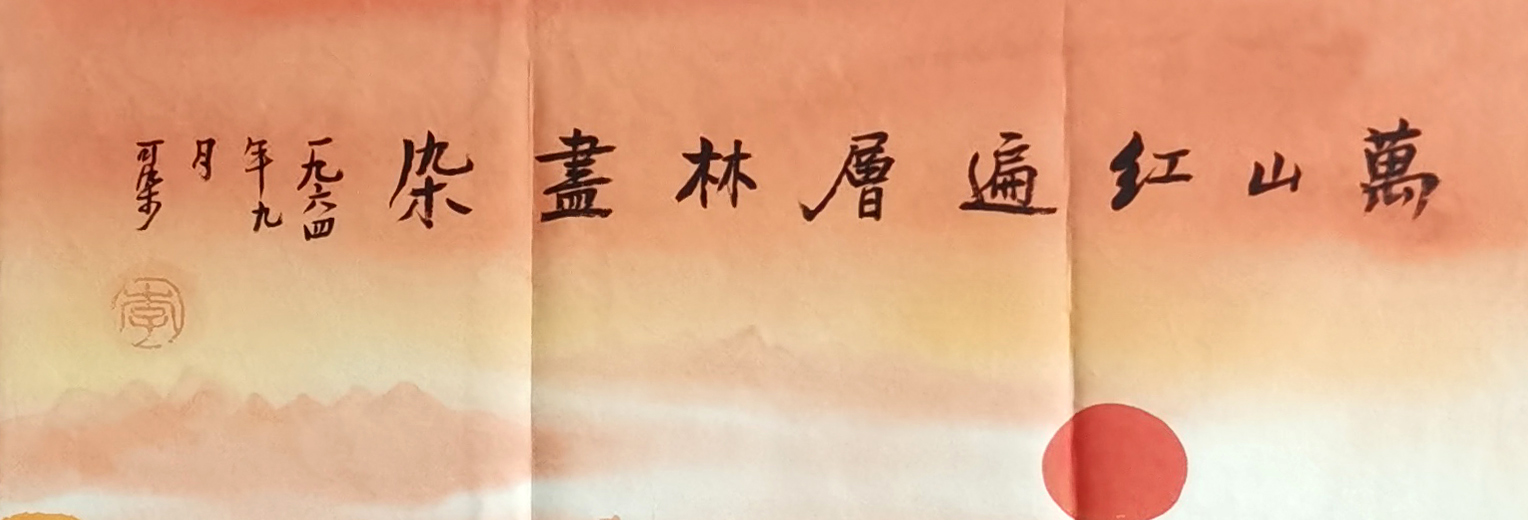 萬山紅遍層林盡染
一九六四
年九
月
可染